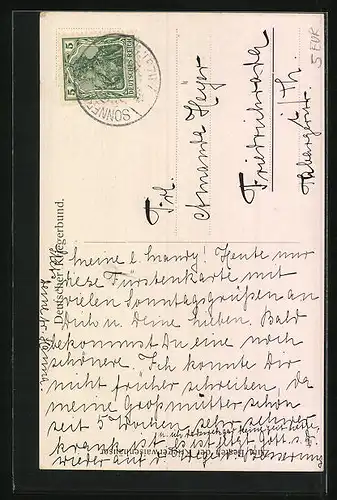 5 EUR
5
5
DEUTSCHES REICH
SONNE
Deutscher Kriegerbund.
Frl.
Amanda Heyer
Friedrichroda
i/Th.
Meine l. Mandy! Heute nur
diese Fürstenkarte mit
vielen Sonntagsgrüßen an
Dich u. Deine Lieben. Bald
bekommst Du eine noch
schönere. Ich konnte Dir
nicht früher schreiben, da
meine Großmutter schon
seit 5 Wochen sehr schwer
krank ist. Es ist jetzt Gott s. D.
wieder auf d. Wege d. Besserung